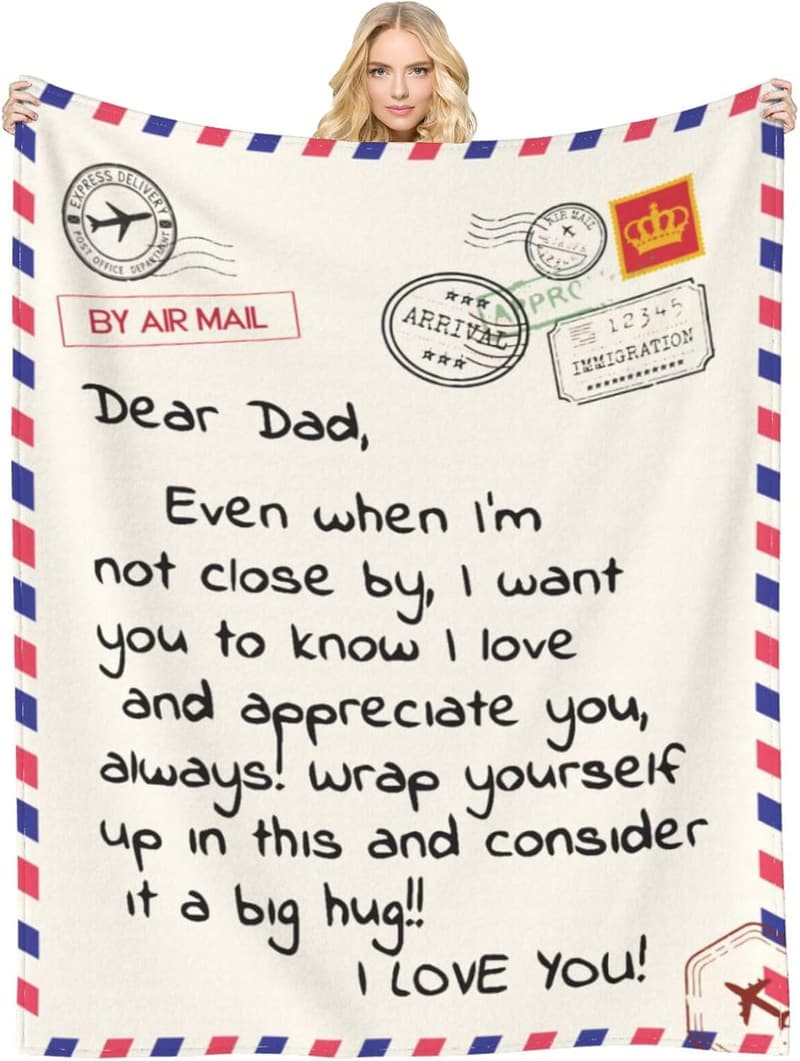 EXPRESS DELIVERY
POST OFFICE DEPARTMENT
BY AIR MAIL
AIR MAIL
ARRIVAL
12345
IMMIGRATION
Dear Dad,
Even when I'm
not close by, I want
you to know I love
and appreciate you,
always! wrap yourself
up in this and consider
it a big hug!!
I LOVE YOU!